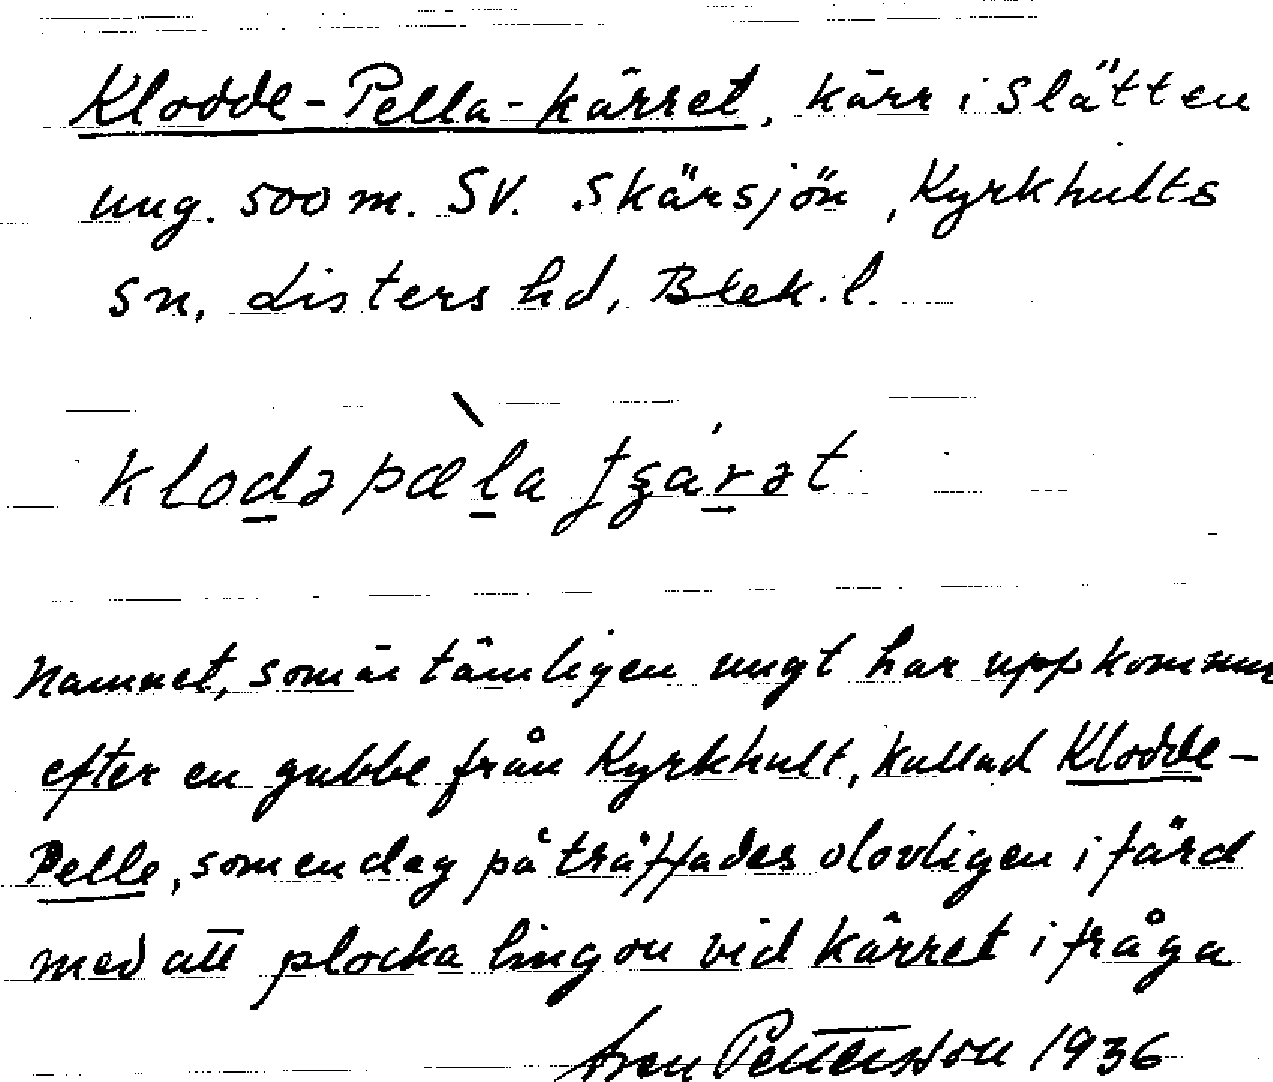 Klodde-Pella-kärret, kärr i Slätten
ung. 500 m. SV. Skärsjön, Kyrkhults
sn, Listers hd, Blek. l.
klodə pæla
Namnet, som är tämligen ungt har uppkommit
efter en gubbe från Kyrkhult, kallad Klodde-
Pelle, som en dag påträffades olovligen i färd
med att plocka lingon vid kärret ifråga
Sven Pettersson 1936